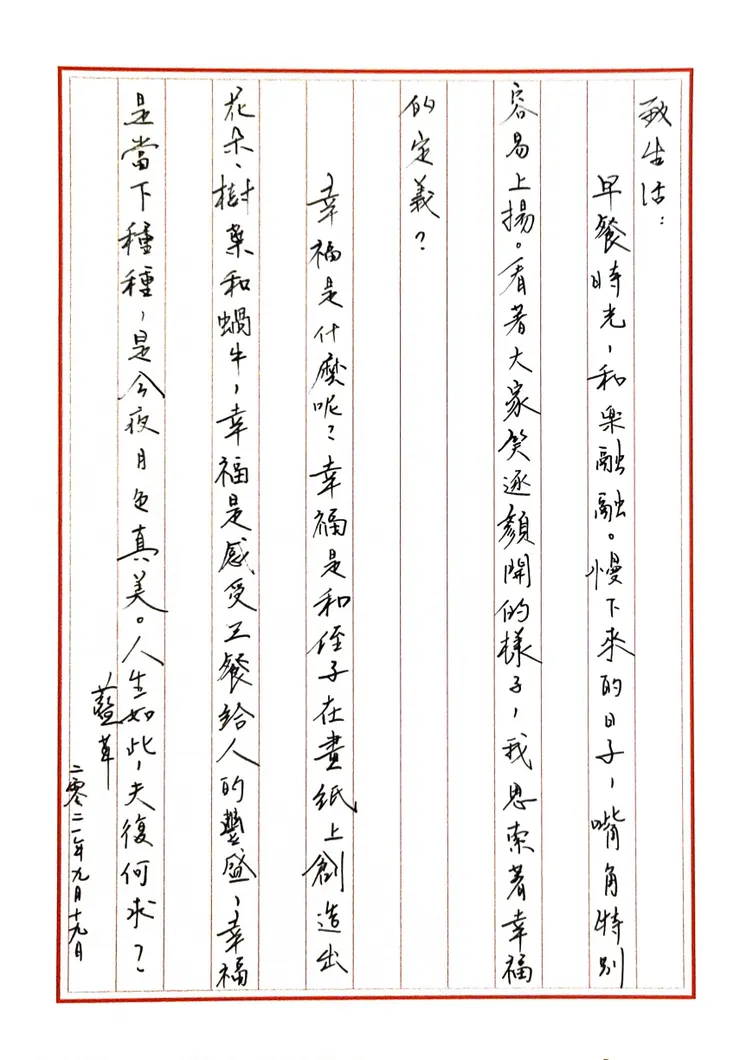 致生活：
早餐時光，和樂融融。慢下來的日子，嘴角特別
容易上揚。看著大家笑逐顏開的樣子，我思索著幸福
的定義？
幸福是什麼呢？幸福是和侄子在畫紙上創造出
花朵、樹葉和蝸牛，幸福是感受工餐給人的豐盛，幸福
是當下種種，是今夜月色真美。人生如此，夫復何求？
藍草
二零二一年九月十九日